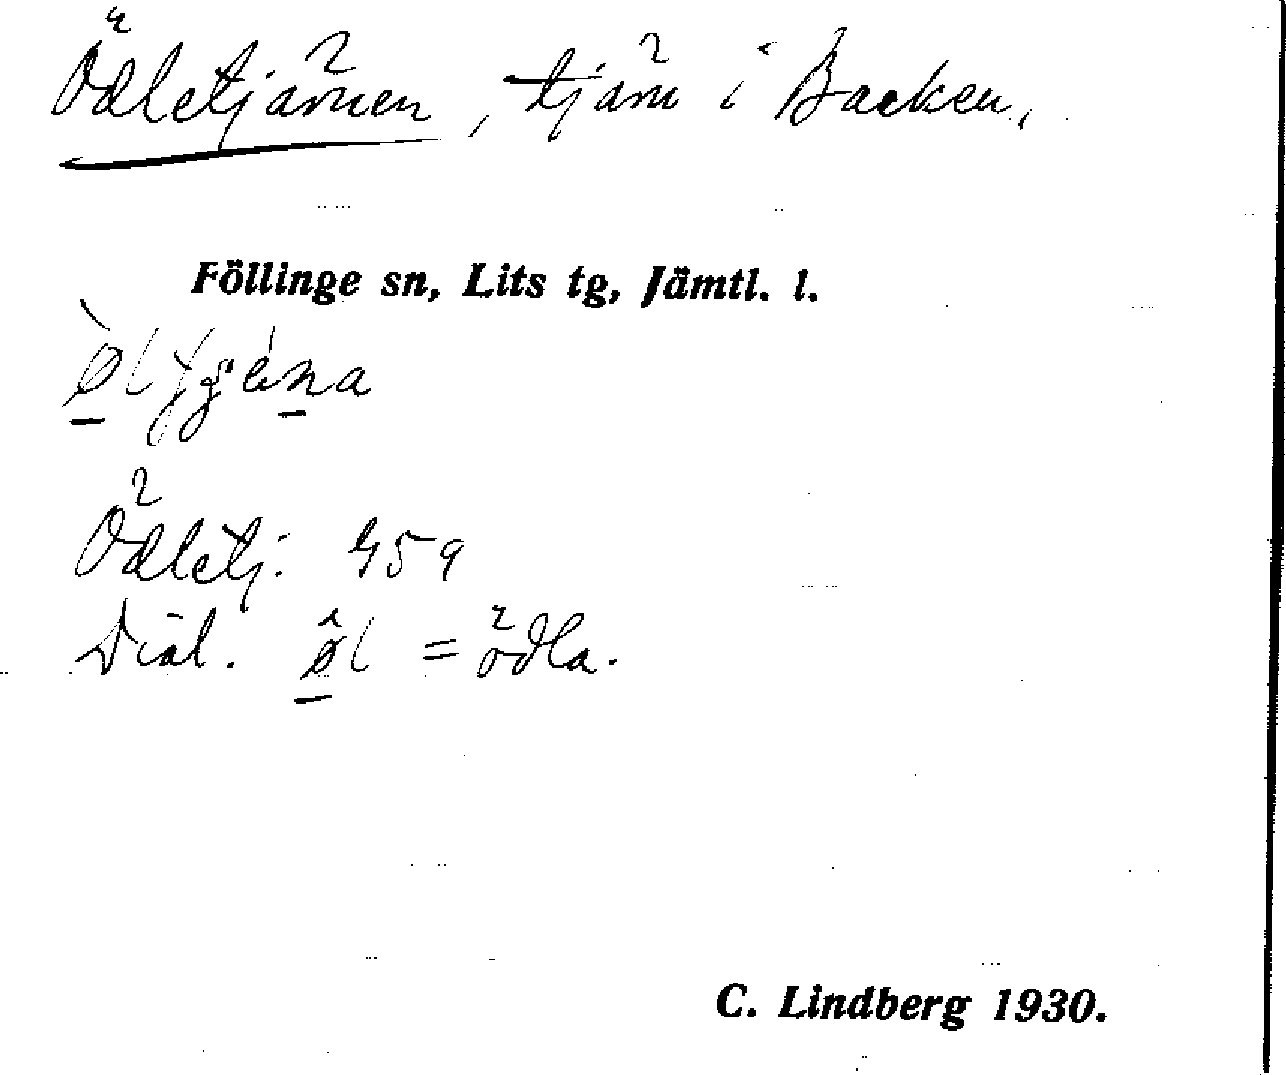 Ödletjärnen, tjärn i Backen,
Föllinge sn, Lits tg, Jämtl. l.
Ödletj: 459
Dial. øl = ödla.
C. Lindberg 1930.